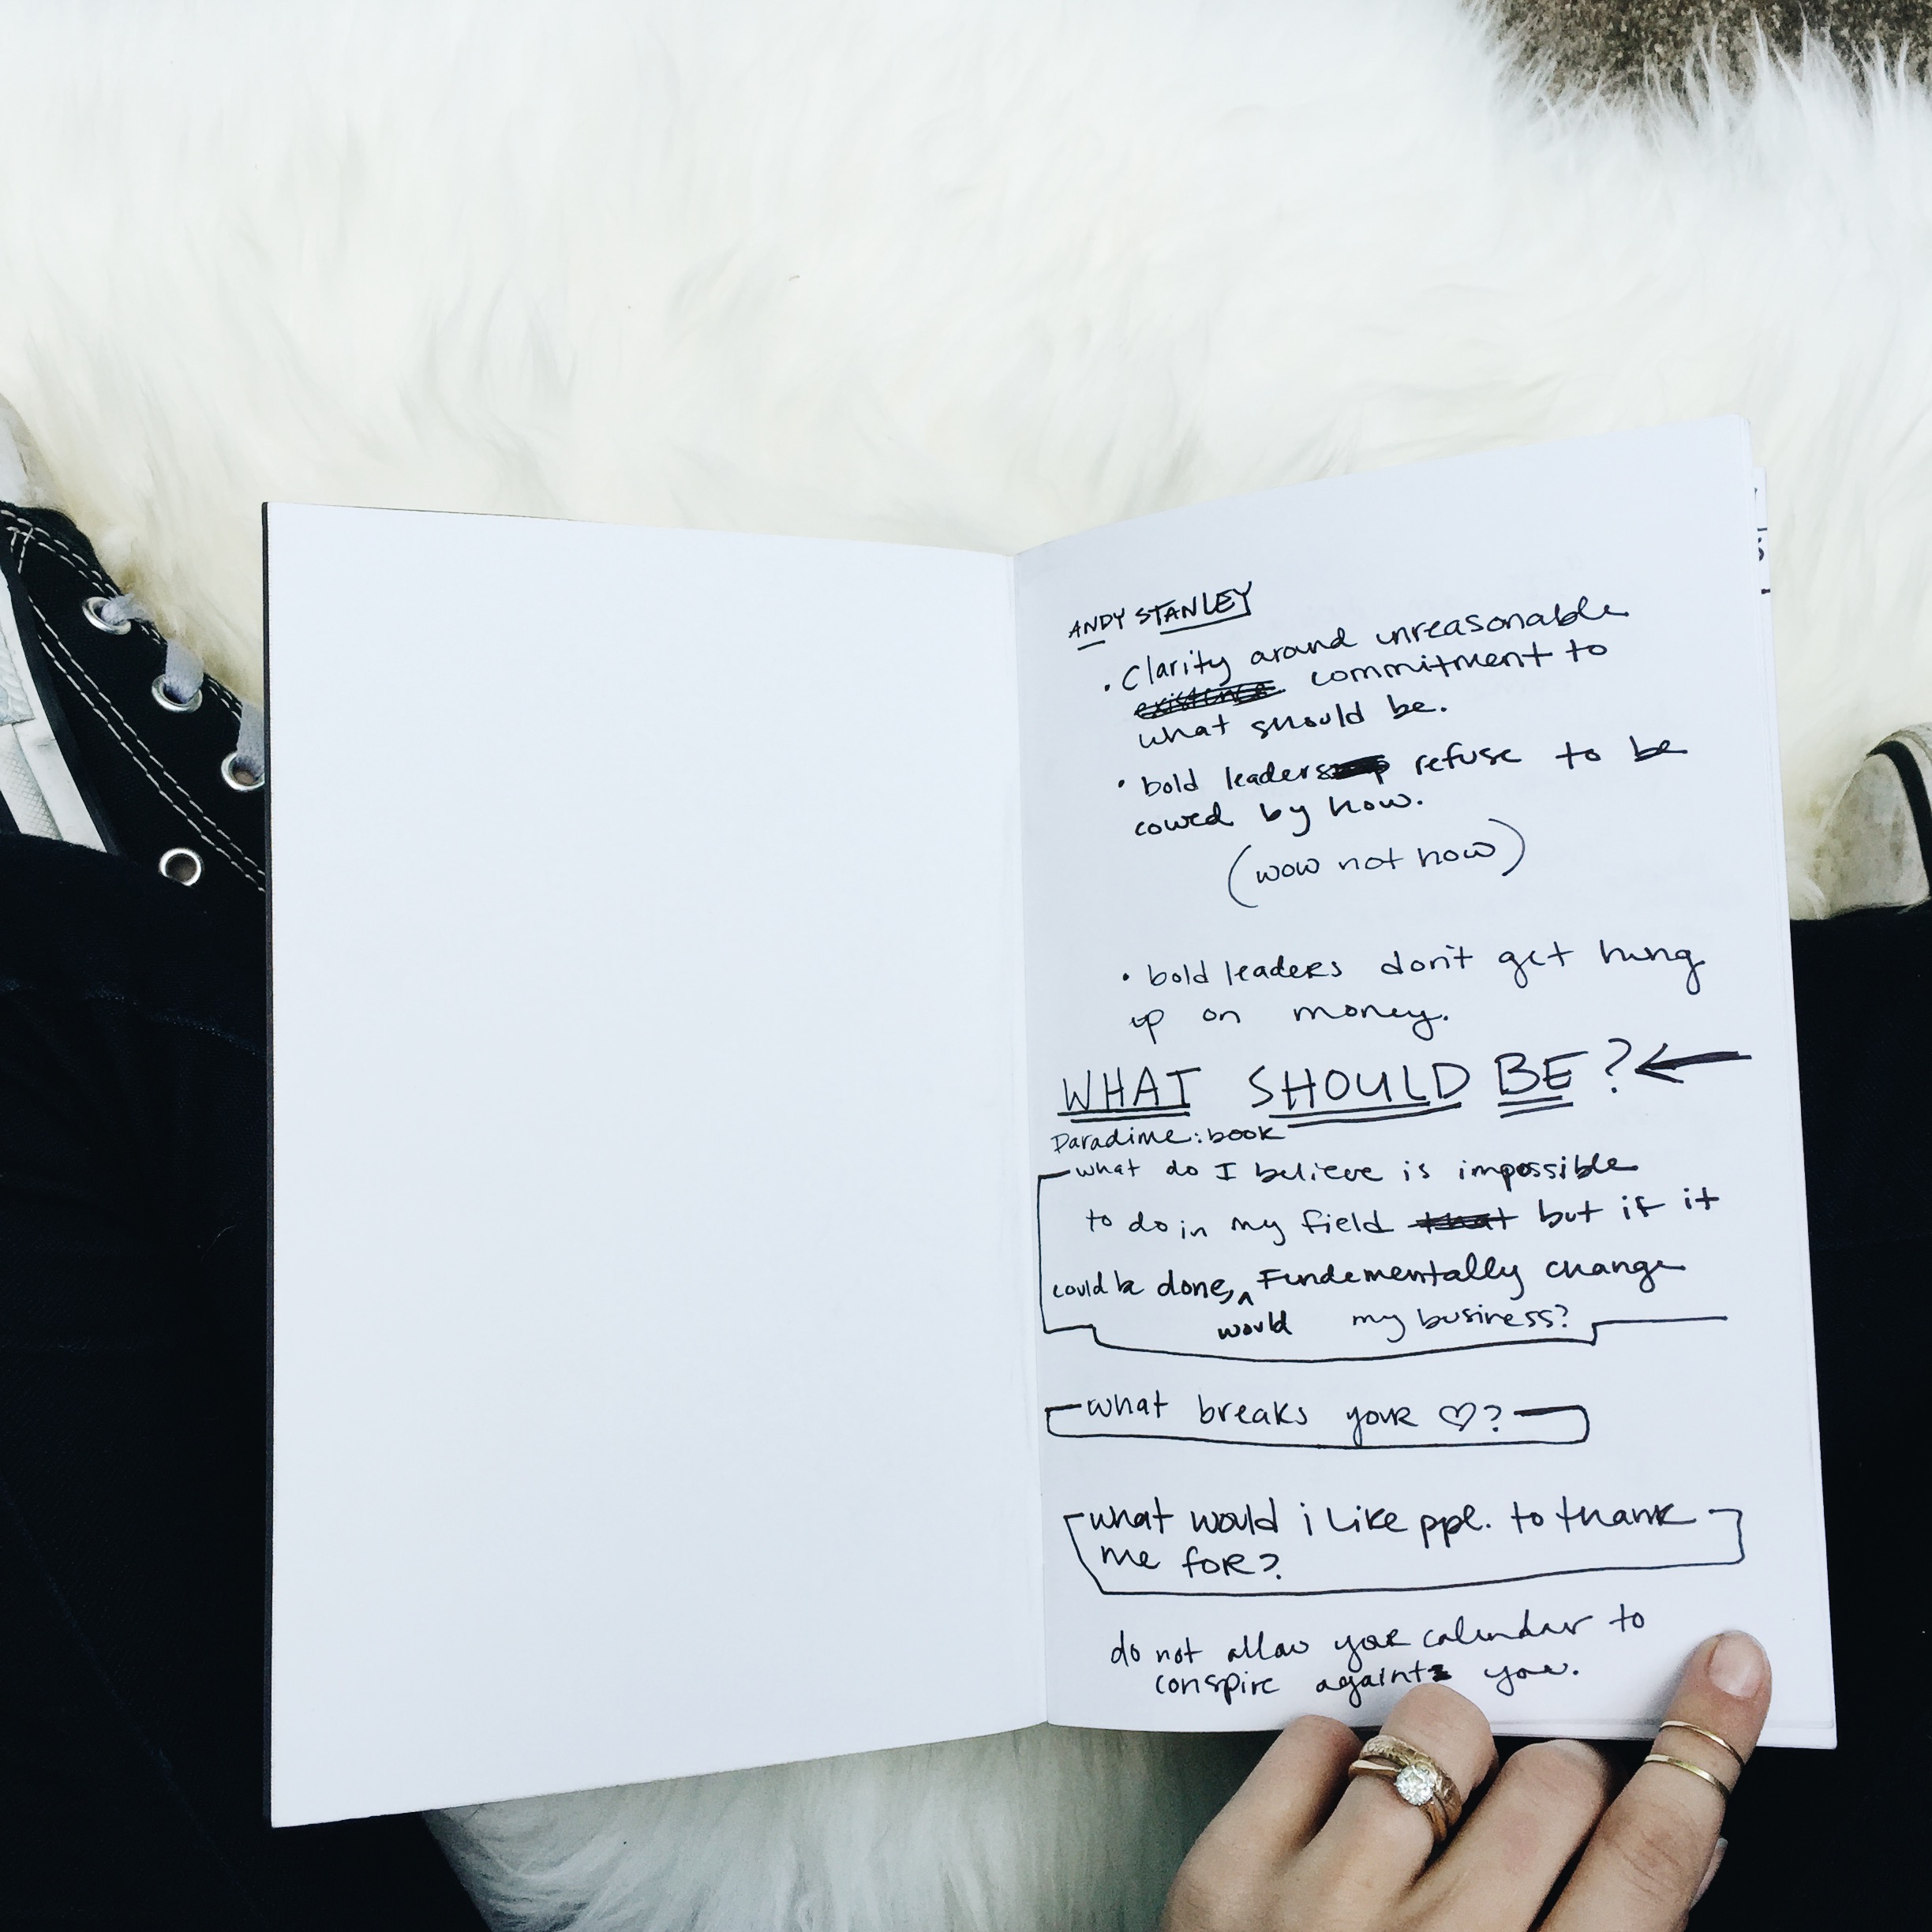 ANDY STANLEY
• Clarity around unreasonable
existence commitment to
what should be.
• bold leaders refuse to be
cowed by how.
(wow not how)
• bold leaders don't get hung
up on money.
WHAT SHOULD BE?
Paradime: book
what do I believe is impossible
to do in my field that but if it
could be done, Fundementally change
would my business?
what breaks your ♡?
what would i like ppl. to thank
me for?
do not allow your calendar to
conspire againt you.